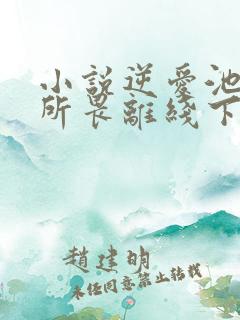 小說逆愛池
所畏離綫下
趙建明
未經同意禁止轉載